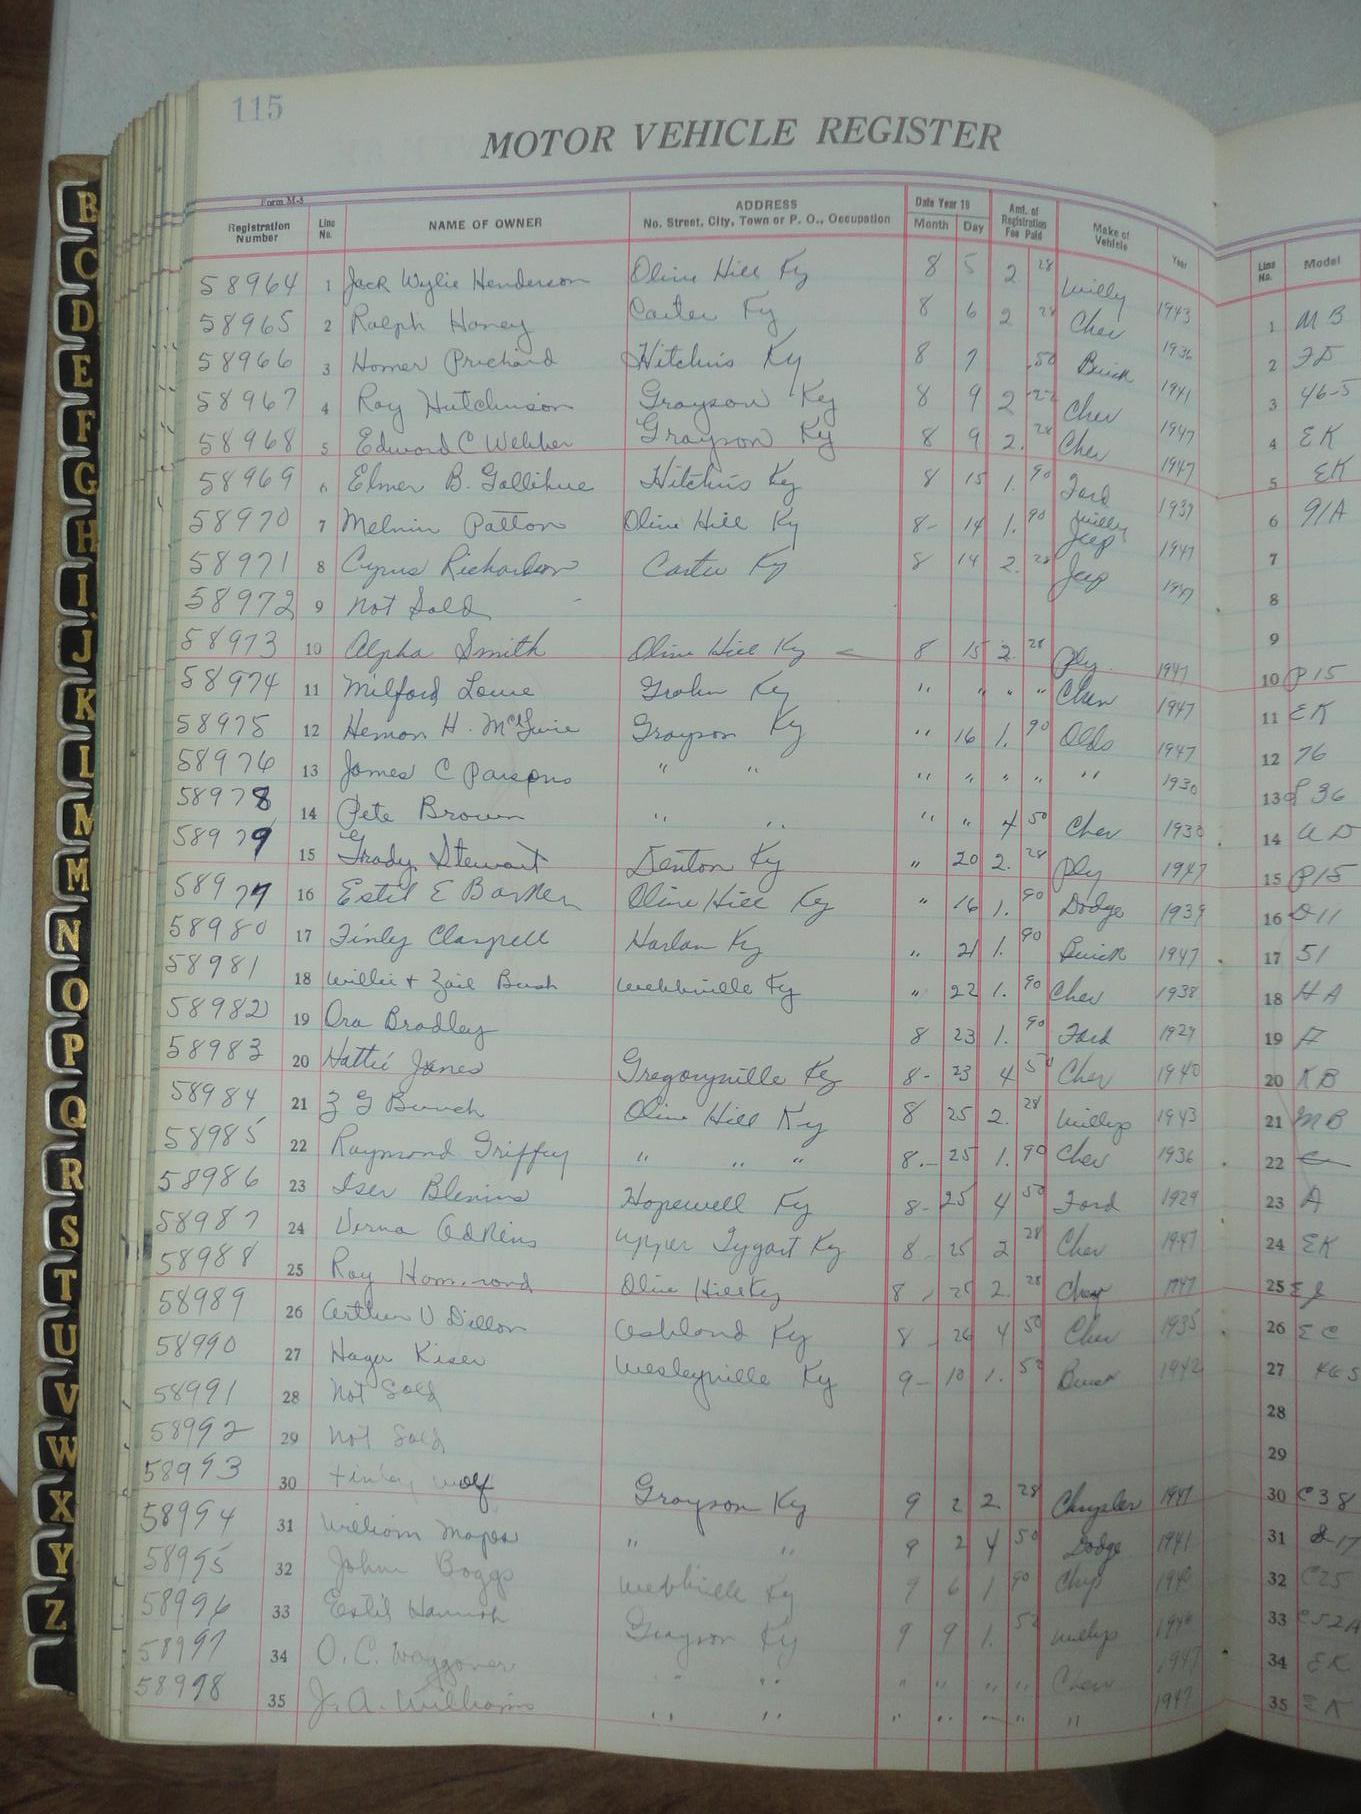 115
MOTOR VEHICLE REGISTER
Form M-3
Registration Number Line No. NAME OF OWNER ADDRESS No. Street, City, Town or P. O., Occupation Date Year 19 Month Day Amt. of Registration Fee Paid Make of Vehicle Year Line No. Model
58964 1 Jack Wylie Henderson Olive Hill Ky 8 5 2 28 Willy 1943 1 MB
58965 2 Ralph Haney Carter Ky 8 6 2 28 Chev 1936 2 FD
58966 3 Homer Prichard Hitchins Ky 8 7 .50 Buick 1941 3 46-5
58967 4 Roy Hutchinson Grayson Ky 8 9 2 Chev 1947 4 EK
58968 5 Edward C Webber Grayson Ky 8 9 2. 28 Chev 1947 5 EK
58969 6 Elmer B. Gollihue Hitchins Ky 8 15 1. 90 Ford 1939 6 91A
58970 7 Melvin Patton Olive Hill Ky 8- 14 1. 90 Willy Jeep 1947 7
58971 8 Cyrus Richardson Carter Ky 8 14 2. 28 Jeep 1947 8
58972 9 Not Sold 9
58973 10 Alpha Smith Olive Hill Ky 8 15 2. 28 Ply. 1947 10 P15
58974 11 Milford Lowe Grahn Ky " " " " Chev 1947 11 EK
58975 12 Hemon H. McGuire Grayson Ky " 16 1. 90 Olds 1947 12 76
58976 13 James C Parsons " " " " " " " 1930 13 36
58978 14 Pete Brown " " " " 4 50 Chev 1930 14 AD
58979 15 Grady Stewart Denton Ky " 20 2. 28 Ply 1947 15 P15
58977 16 Estil E Barker Olive Hill Ky " 16 1. 90 Dodge 1939 16 D11
58980 17 Finley Claypell Harlan Ky " 21 1. 90 Buick 1947 17 51
58981 18 Willie + Zail Bush Webbville Ky " 22 1. 90 Chev 1938 18 HA
58982 19 Ora Bradley 8 23 1. 90 Ford 1929 19 A
58983 20 Hattie Jones Gregoryville Ky 8- 23 4 50 Chev 1940 20 KB
58984 21 Z G Burch Olive Hill Ky 8 25 2. 28 Willys 1943 21 MB
58985 22 Raymond Griffey " " " 8.- 25 1. 90 Chev 1936 22
58986 23 Iser Blevins Hopewell Ky 8- 25 4 50 Ford 1929 23 A
58987 24 Verna Adkins Upper Tygart Ky 8- 25 2 28 Chev 1947 24 EK
58988 25 Roy Hammond Olive Hill Ky 8 25 2. 28 Chev 1947 25 EJ
58989 26 Arthur V Dillon Ashland Ky 8 26 4 50 Chev 1935 26 EC
58990 27 Hager Kiser Wesleyville Ky 9- 10 1. 52 Buick 1942 27 46S
58991 28 Not Sold 28
58992 29 Not Sold 29
58993 30 Finley Wolf Grayson Ky 9 2 2 28 Chrysler 1947 30 C38
58994 31 William Mapes " " 9 2 4 50 Dodge 1941 31 D17
58995 32 John Boggs Webbville Ky 9 6 1 90 1940 32 C25
58996 33 Estil Hannah Grayson Ky 9 9 1. 52 Willys 1946 33 C52A
58997 34 O. C. Waggoner " " " " " " Chev 1947 34 EK
58998 35 J. A. Williams " " " " " " 1947 35 EK
B
C
D
E
F
G
H
I
J
K
L
M
M
N
O
P
Q
R
S
T
U
V
W
X
Y
Z